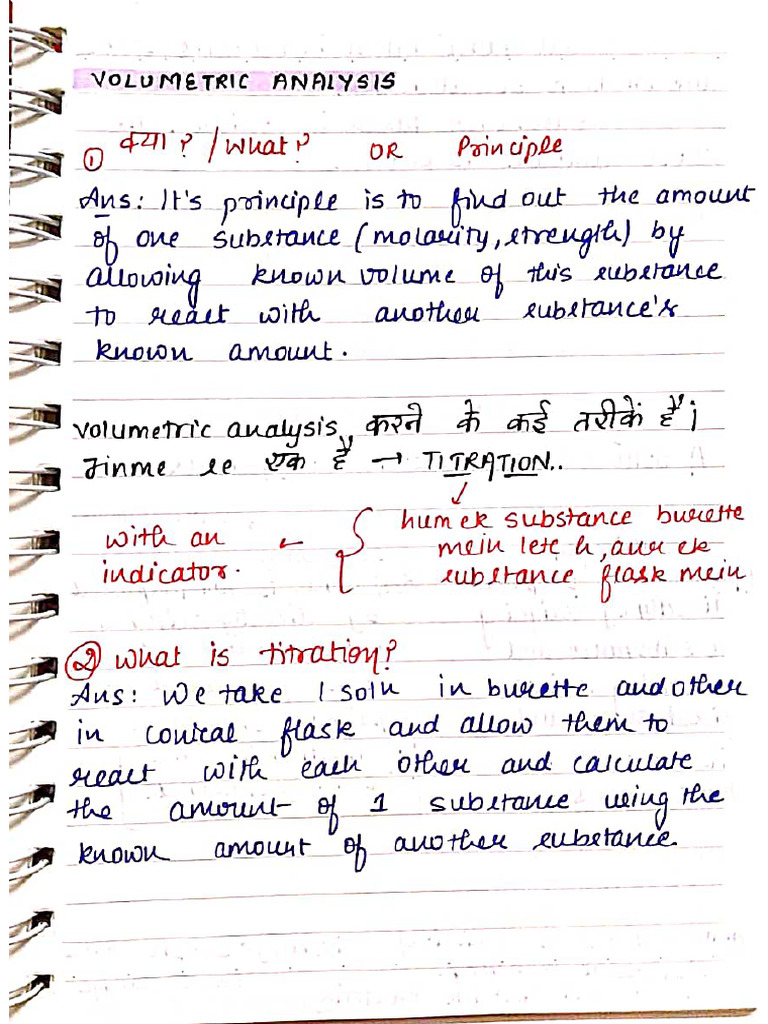 VOLUMETRIC ANALYSIS
① क्या? / What? OR Principle
Ans: It's principle is to find out the amount
of one substance (molarity, strength) by
allowing known volume of this substance
to react with another substance's
known amount.
Volumetric analysis, करने के कई तरीकें हैं।
Jinme se एक है → TITRATION..
with an indicator. ← { hum ek substance burette
mein lete h, aur ek
substance flask mein
② What is titration?
Ans: We take 1 soln in burette and other
in conical flask and allow them to
react with each other and calculate
the amount of 1 substance using the
known amount of another substance.